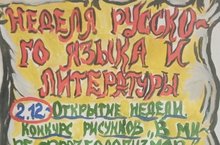 НЕДЕЛЯ РУССКО-
ГО ЯЗЫКА И
ЛИТЕРАТУРЫ
2.12- ОТКРЫТИЕ НЕДЕЛИ.
КОНКУРС РИСУНКОВ „В МИ-
РЕ ФРАЗЕОЛОГИЗМОВ